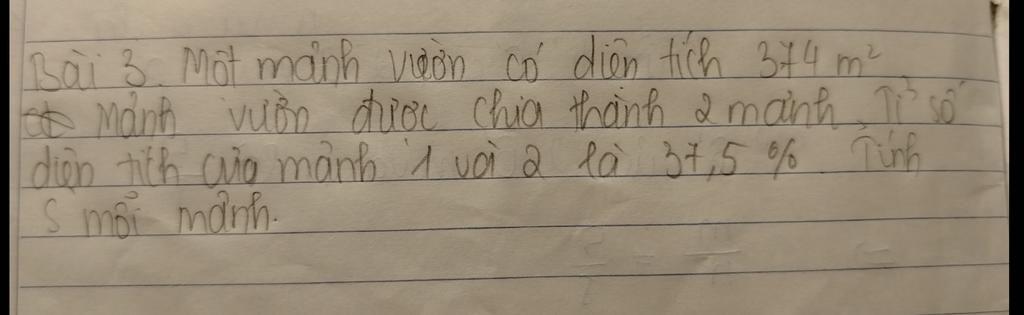 Bài 3. Một mảnh vườn có diện tích 374 m²
Mảnh vườn được chia thành 2 mảnh. Tỉ số
diện tích của mảnh 1 và 2 là 37,5 %. Tính
S mỗi mảnh.